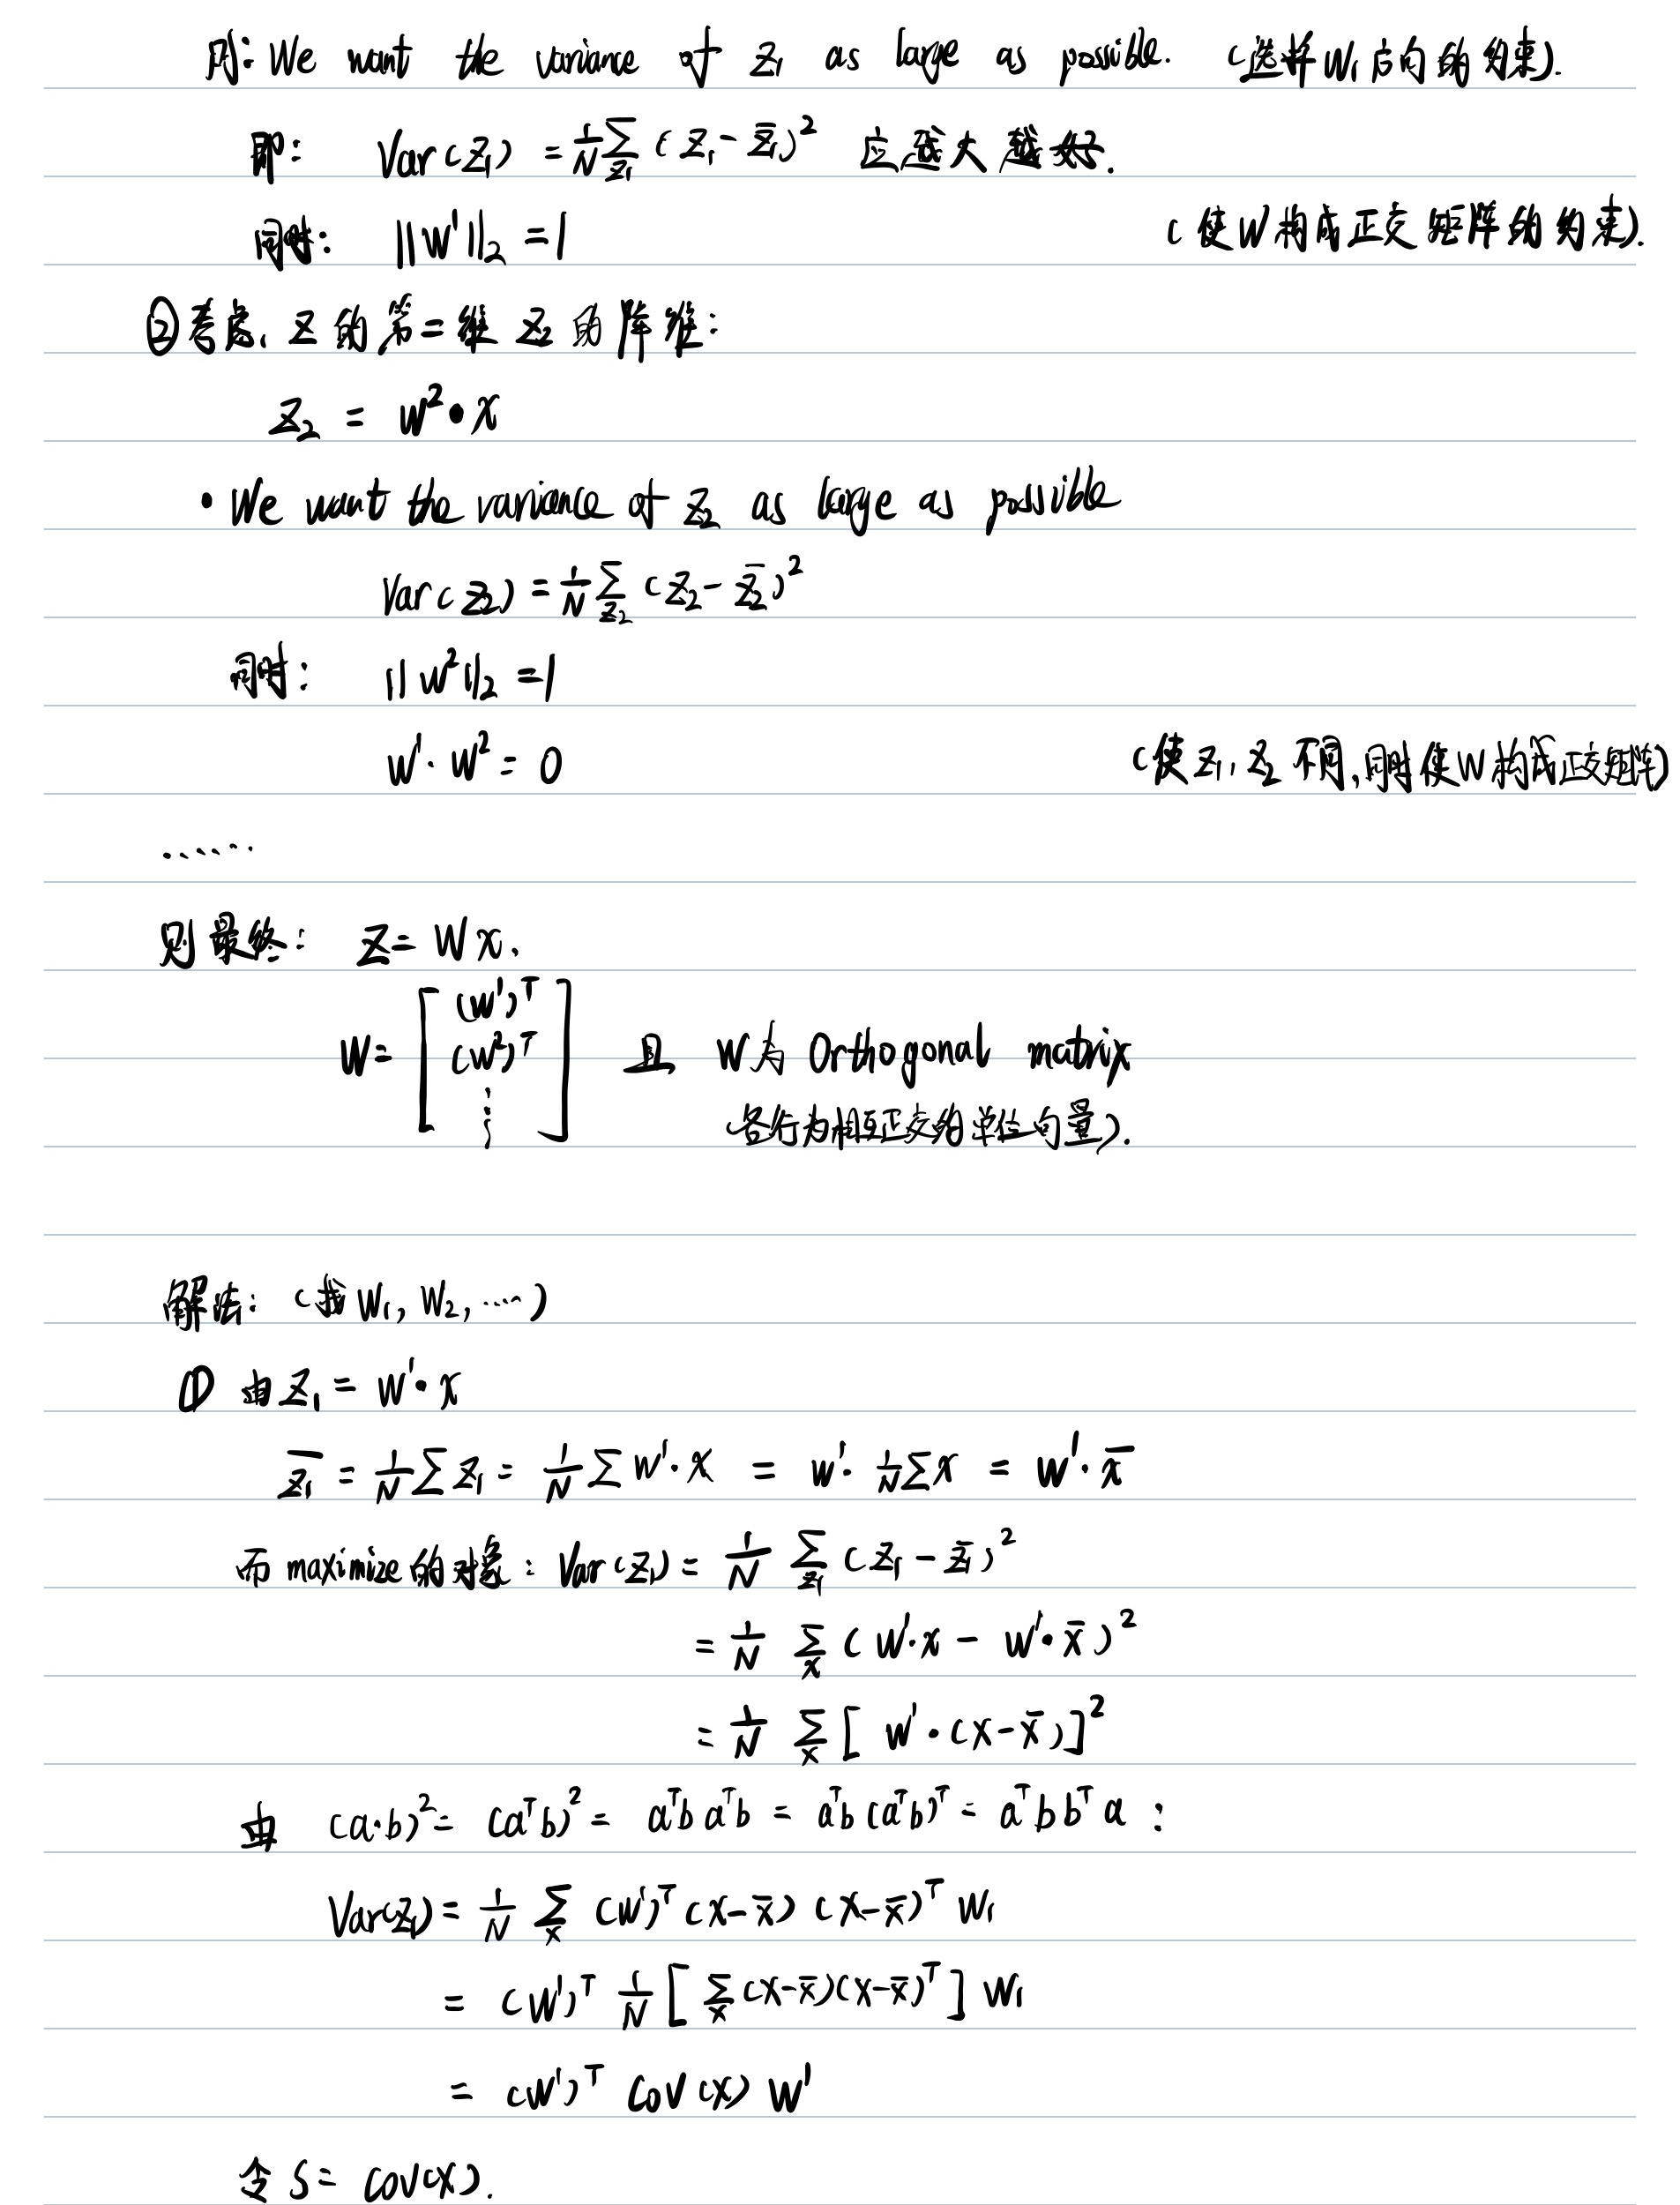 则: We want the variance of z₁ as large as possible. (选择 W₁ 方向的约束).
即: Var(z₁) = 1/N Σ_{z₁} (z₁ - z̄₁)² 应越大越好.
同时: ‖W¹‖₂ = 1 (使W构成正交矩阵的约束).
②考虑, z 的第二维 z₂ 的降维:
z₂ = W²·x
• We want the variance of z₂ as large as possible
Var(z₂) = 1/N Σ_{z₂} (z₂ - z̄₂)²
同时: ‖W²‖₂ = 1
W¹·W² = 0 (使 z₁, z₂ 不同, 同时使W构成正交矩阵)
......
则最终: z = Wx.
W = [ (W¹)ᵀ
(W²)ᵀ
⋮ ] 且 W为 Orthogonal matrix
(各行为相互正交的单位向量).
解法: (找 W₁, W₂, ....)
① 由 z₁ = W¹·x
z̄₁ = 1/N Σ z₁ = 1/N Σ W¹·x = W¹· 1/N Σ x = W¹·x̄
而 maximize 的对象: Var(z₁) = 1/N Σ_{z₁} (z₁ - z̄₁)²
= 1/N Σ_x (W¹·x - W¹·x̄)²
= 1/N Σ_x [W¹·(x - x̄)]²
由 (a·b)² = (aᵀb)² = aᵀb aᵀb = aᵀb (aᵀb)ᵀ = aᵀb bᵀa :
Var(z₁) = 1/N Σ_x (W¹)ᵀ (x - x̄) (x - x̄)ᵀ W₁
= (W¹)ᵀ 1/N [Σ_x (x - x̄)(x - x̄)ᵀ] W₁
= (W¹)ᵀ Cov(x) W¹
令 S = Cov(x).